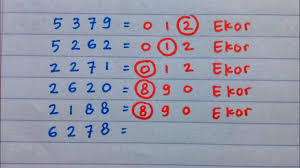 5 3 7 9 = 0 1 2 Ekor
5 2 6 2 = 0 1 2 Ekor
2 2 7 1 = 0 1 2 Ekor
2 6 2 0 = 8 9 0 Ekor
2 1 8 8 = 8 9 0 Ekor
6 2 7 8 =